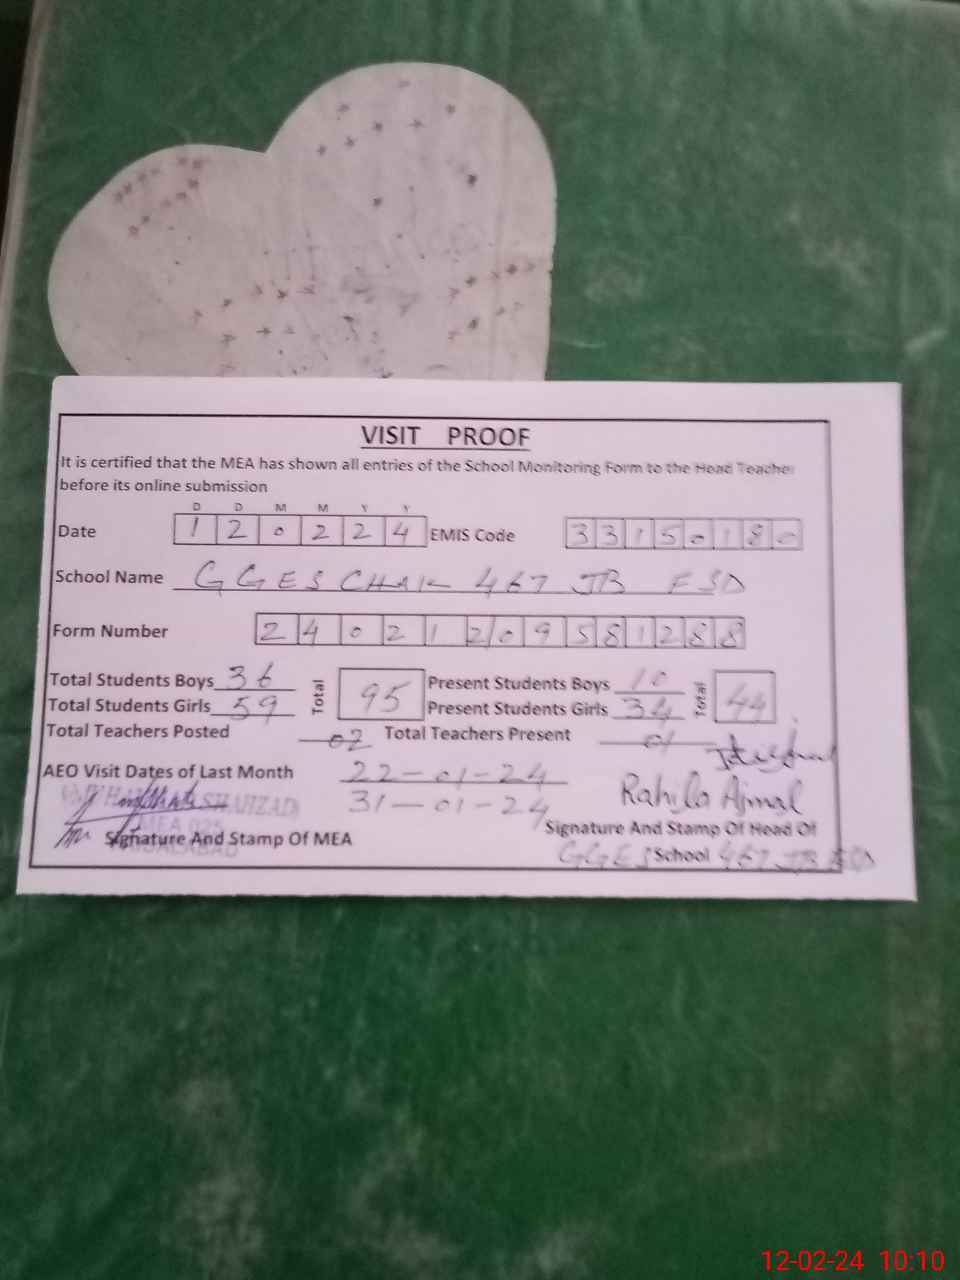 VISIT PROOF
It is certified that the MEA has shown all entries of the School Monitoring Form to the Head Teacher
before its online submission
D D M M Y Y
Date 1 2 0 2 2 4 EMIS Code 3 3 1 5 0 1 8 0
School Name GGES CHAK 467 JB FSD
Form Number 2 4 0 2 1 2 0 9 5 8 1 2 8 8
Total Students Boys 36 Total 95 Present Students Boys 10 Total 44
Total Students Girls 59 Present Students Girls 34
Total Teachers Posted 02 Total Teachers Present 01
AEO Visit Dates of Last Month 22-01-24
31-01-24 Rahila Ajmal
SHAHZAD
MEA
Signature And Stamp Of MEA Signature And Stamp Of Head Of
FAISALABAD
GGES School 467 JB FSD
12-02-24 10:10